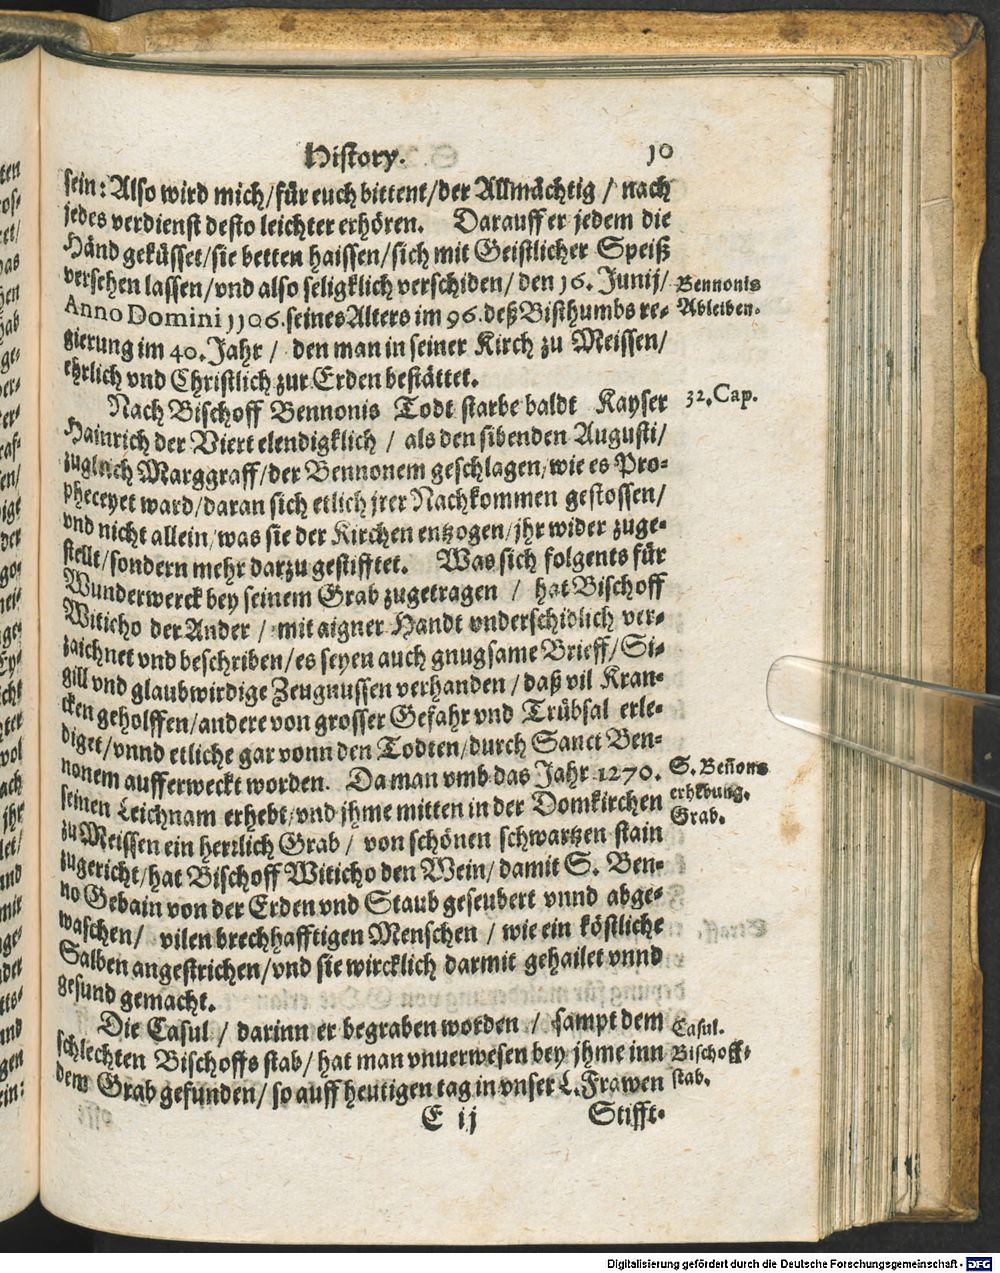 History. 10
sein: Also wird mich/für euch bittent/der Allmächtig / nach
jedes verdienst desto leichter erhören. Darauff er jedem die
Händ geküsset/sie betten haissen/sich mit Geistlicher Speiß
versehen lassen/vnd also seligklich verschiden/ den 16. Junij/
Anno Domini 1106. seines Alters im 96. deß Bisthumbs re-
gierung im 40. Jahr / den man in seiner Kirch zu Meissen/
ehrlich vnd Christlich zur Erden bestättet.
Bennonis
Ableiben.
Nach Bischoff Bennonis Todt starbe baldt Kayser
Hainrich der Viert elendigklich / als den sibenden Augusti/
zugleich Marggraff/der Bennonem geschlagen/wie es Pro-
pheceyet ward/daran sich etlich jrer Nachkommen gestossen/
vnd nicht allein/was sie der Kirchen entzogen/jhr wider zuge-
stellt/sondern mehr darzu gestifftet. Was sich folgents für
Wunderwerck bey seinem Grab zugetragen / hat Bischoff
Witicho der Ander / mit aigner Handt vnderschidlich ver-
zaichnet vnd beschriben/es seyen auch gnugsame Brieff/Si-
gill vnd glaubwirdige Zeugnussen verhanden / daß vil Kran-
cken geholffen/andere von grosser Gefahr vnd Trübsal erle-
diget/vnnd etliche gar vonn den Todten/durch Sanct Ben-
nonem aufferweckt worden. Da man vmb das Jahr 1270.
seinen Leichnam erhebt/vnd jhme mitten in der Domkirchen
zu Meissen ein herrlich Grab / von schönen schwartzen stain
zugericht/hat Bischoff Witicho den Wein/ damit S. Ben-
no Gebain von der Erden vnd Staub geseubert vnnd abge-
waschen/ vilen brechhafftigen Menschen / wie ein köstliche
Salben angestrichen/vnd sie wircklich darmit gehailet vnnd
gesund gemacht.
32. Cap.
S. Beñons
erhebung.
Grab.
Die Casul / darinn er begraben worden / sampt dem
schlechten Bischoffs stab/ hat man vnuerwesen bey jhme inn
dem Grab gefunden/ so auff heutigen tag in vnser L. Frawen
Casul.
Bischoff-
stab.
E ij Stifft-
Digitalisierung gefördert durch die Deutsche Forschungsgemeinschaft - DFG